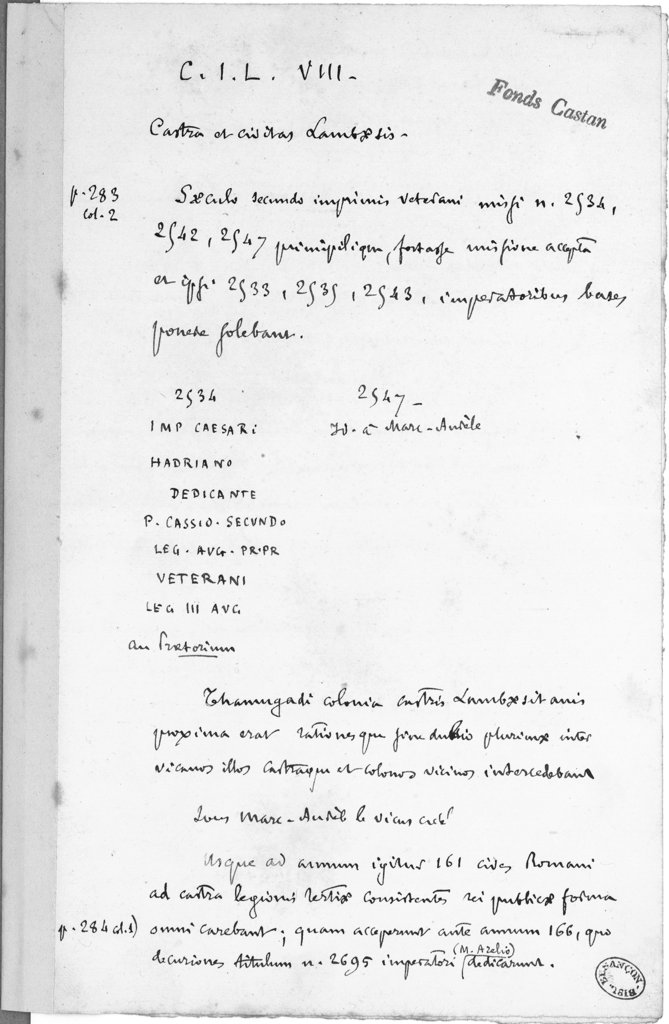 C. I. L. VIII -
Fonds Castan
Castra et civitas Lambæsis -
p. 283
col. 2
Sæculo secundo imprimis veterani missi n. 2534,
2542, 2547 primipilique, fortasse missione accepta
et ipsi 2533, 2535, 2543, imperatoribus bases
ponere solebant.
2534
IMP CAESARI
HADRIANO
DEDICANTE
P. CASSIO. SECUNDO
LEG. AVG. PR. PR
VETERANI
LEG III AVG
au Prætorium
2547 -
Id. à Marc-Aurèle
Thamugadi colonia castris Lambæsitanis
proxima erat rationesque sine dubio plurimæ inter
vicanos illos castraque et colonos vicinos intercedebant
Sous Marc-Aurèle le vicus
Usque ad annum igitur 161 cives Romani
ad castra legionis tertiæ consistentes rei publicæ forma
p. 284 col. 1)
omni carebant; quam acceperunt ante annum 166, quo
decuriones titulum n. 2695 imperatori (M. Arelio) dedicarunt.
BIBL. BESANÇON